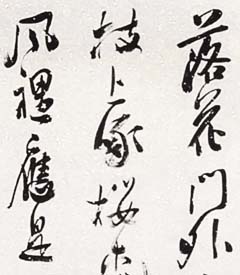 落花門外
枝上桜
風裡應是